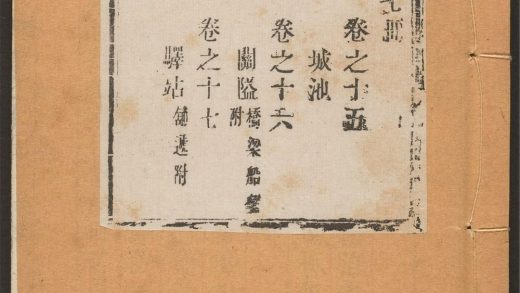 卷之十五
城池
卷之十六
關隘橋梁船附
卷之十七
驛站鋪遞附